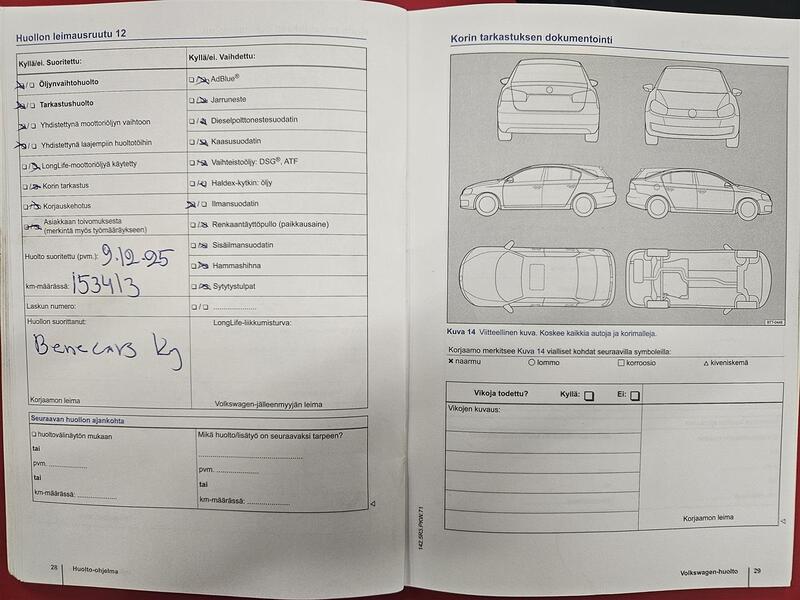 Huollon leimausruutu 12
Kyllä/ei. Suoritettu:
Öljynvaihtohuolto
Tarkastushuolto
Yhdistettynä moottoriöljyn vaihtoon
Yhdistettynä laajempiin huoltotöihin
LongLife-moottoriöljyä käytetty
Korin tarkastus
Korjauskehotus
Asiakkaan toivomuksesta
(merkintä myös työmääräykseen)
Huolto suoritettu (pvm.): 9.12.25
km-määrässä: 153413
Laskun numero:
Huollon suorittanut:
Benecars Ky
Korjaamon leima
Kyllä/ei. Vaihdettu:
AdBlue®
Jarruneste
Dieselpolttonestesuodatin
Kaasusuodatin
Vaihteistoöljy: DSG®, ATF
Haldex-kytkin: öljy
Ilmansuodatin
Renkaantäyttöpullo (paikkausaine)
Sisäilmansuodatin
Hammashihna
Sytytystulpat
☐ / ☐ ....................
LongLife-liikkumisturva:
Volkswagen-jälleenmyyjän leima
Seuraavan huollon ajankohta
☐ huoltovälinäytön mukaan
tai
pvm. ....................
tai
km-määrässä: ....................
Mikä huolto/lisätyö on seuraavaksi tarpeen?
....................
pvm. ....................
tai
km-määrässä: ....................
28 Huolto-ohjelma
Korin tarkastuksen dokumentointi
B7T-0448
Kuva 14 Viitteellinen kuva. Koskee kaikkia autoja ja korimalleja.
Korjaamo merkitsee Kuva 14 vialliset kohdat seuraavilla symboleilla:
✖ naarmu ○ lommo □ korroosio △ kiveniskemä
Vikoja todettu? Kyllä: ☐ Ei: ☐
Vikojen kuvaus:
Korjaamon leima
142.5R3.PKW.71
Volkswagen-huolto 29